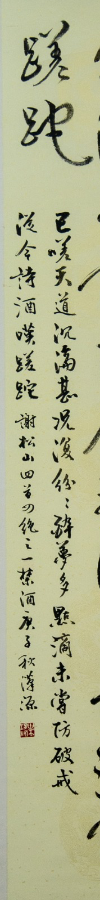 蹉跎
已嗟天道沉淪甚況復紛々醉夢多點滴未嘗防破戒
從今詩酒嘆蹉跎 謝松山四首四絕之一禁酒庚子秋漢源